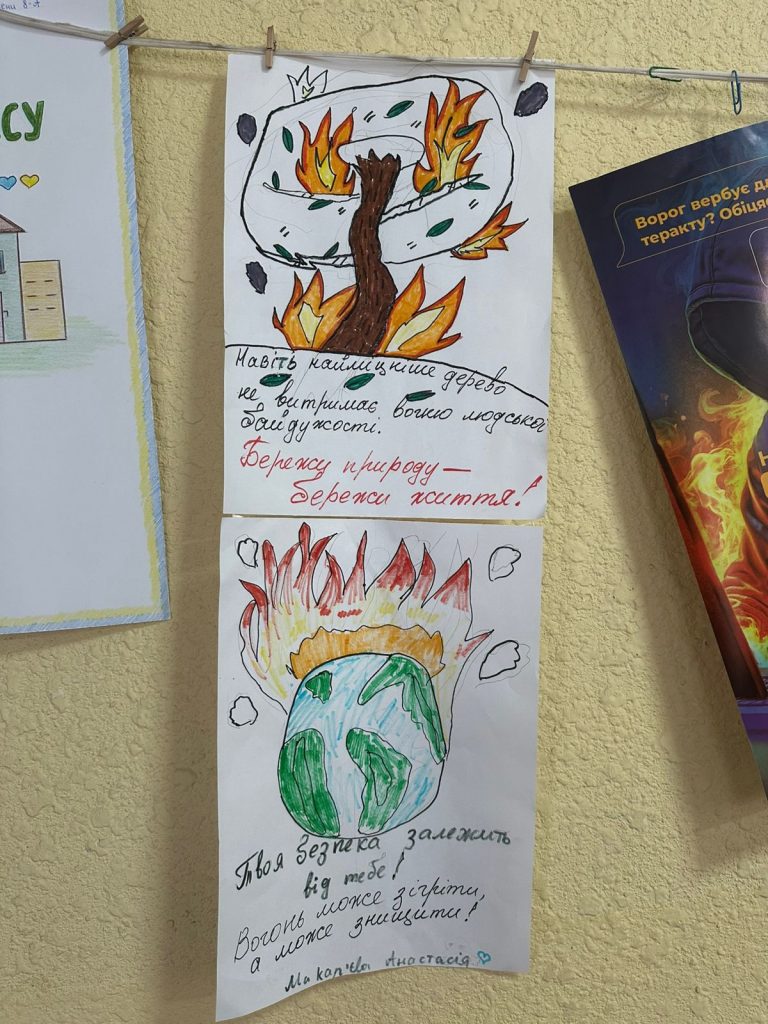 СУ
Навіть найміцніше дерево
не витримає вогню людської
байдужості.
Бережи природу —
бережи життя!
Твоя безпека залежить
від тебе!
Вогонь може зігріти,
а може знищити!
Макап'єва Анастасія
Ворог вербує дл
теракту? Обіця